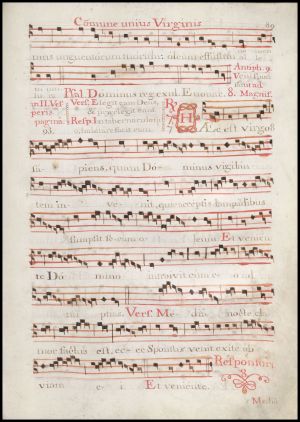 Cõmune unius Virginis 89
unguentorum oleum effusum
Antiph. 9.
Psal. Dominus regnavit. Euouae. 8. Magnif.
in II. Ves Vers. Elegit eam Deus,
peris. & præelegit eam.
pagina Resp. In tabernaculo
93. habitare facit eam.
HÆc est virgo
piens, quam Do minus vigilan
tem in ve nit, quæ acceptis lampadibus
sumpsit secum o leum: Et venien
te Do mino introivit cum e o ad
nuptias. Vers. Me dia nocte cla
mor factus est, ecce Sponsus venit exite ob
viam e i. Et veniente. Responsori
Media